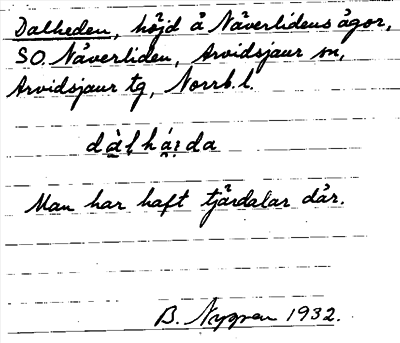 Dalheden, höjd å Näverlidens ägor,
SO. Näverliden, Arvidsjaur sn,
Arvidsjaur tg, Norrb. l.
dàlhái̯da
Man har haft tjärdalar där.
B. Nygren 1932.